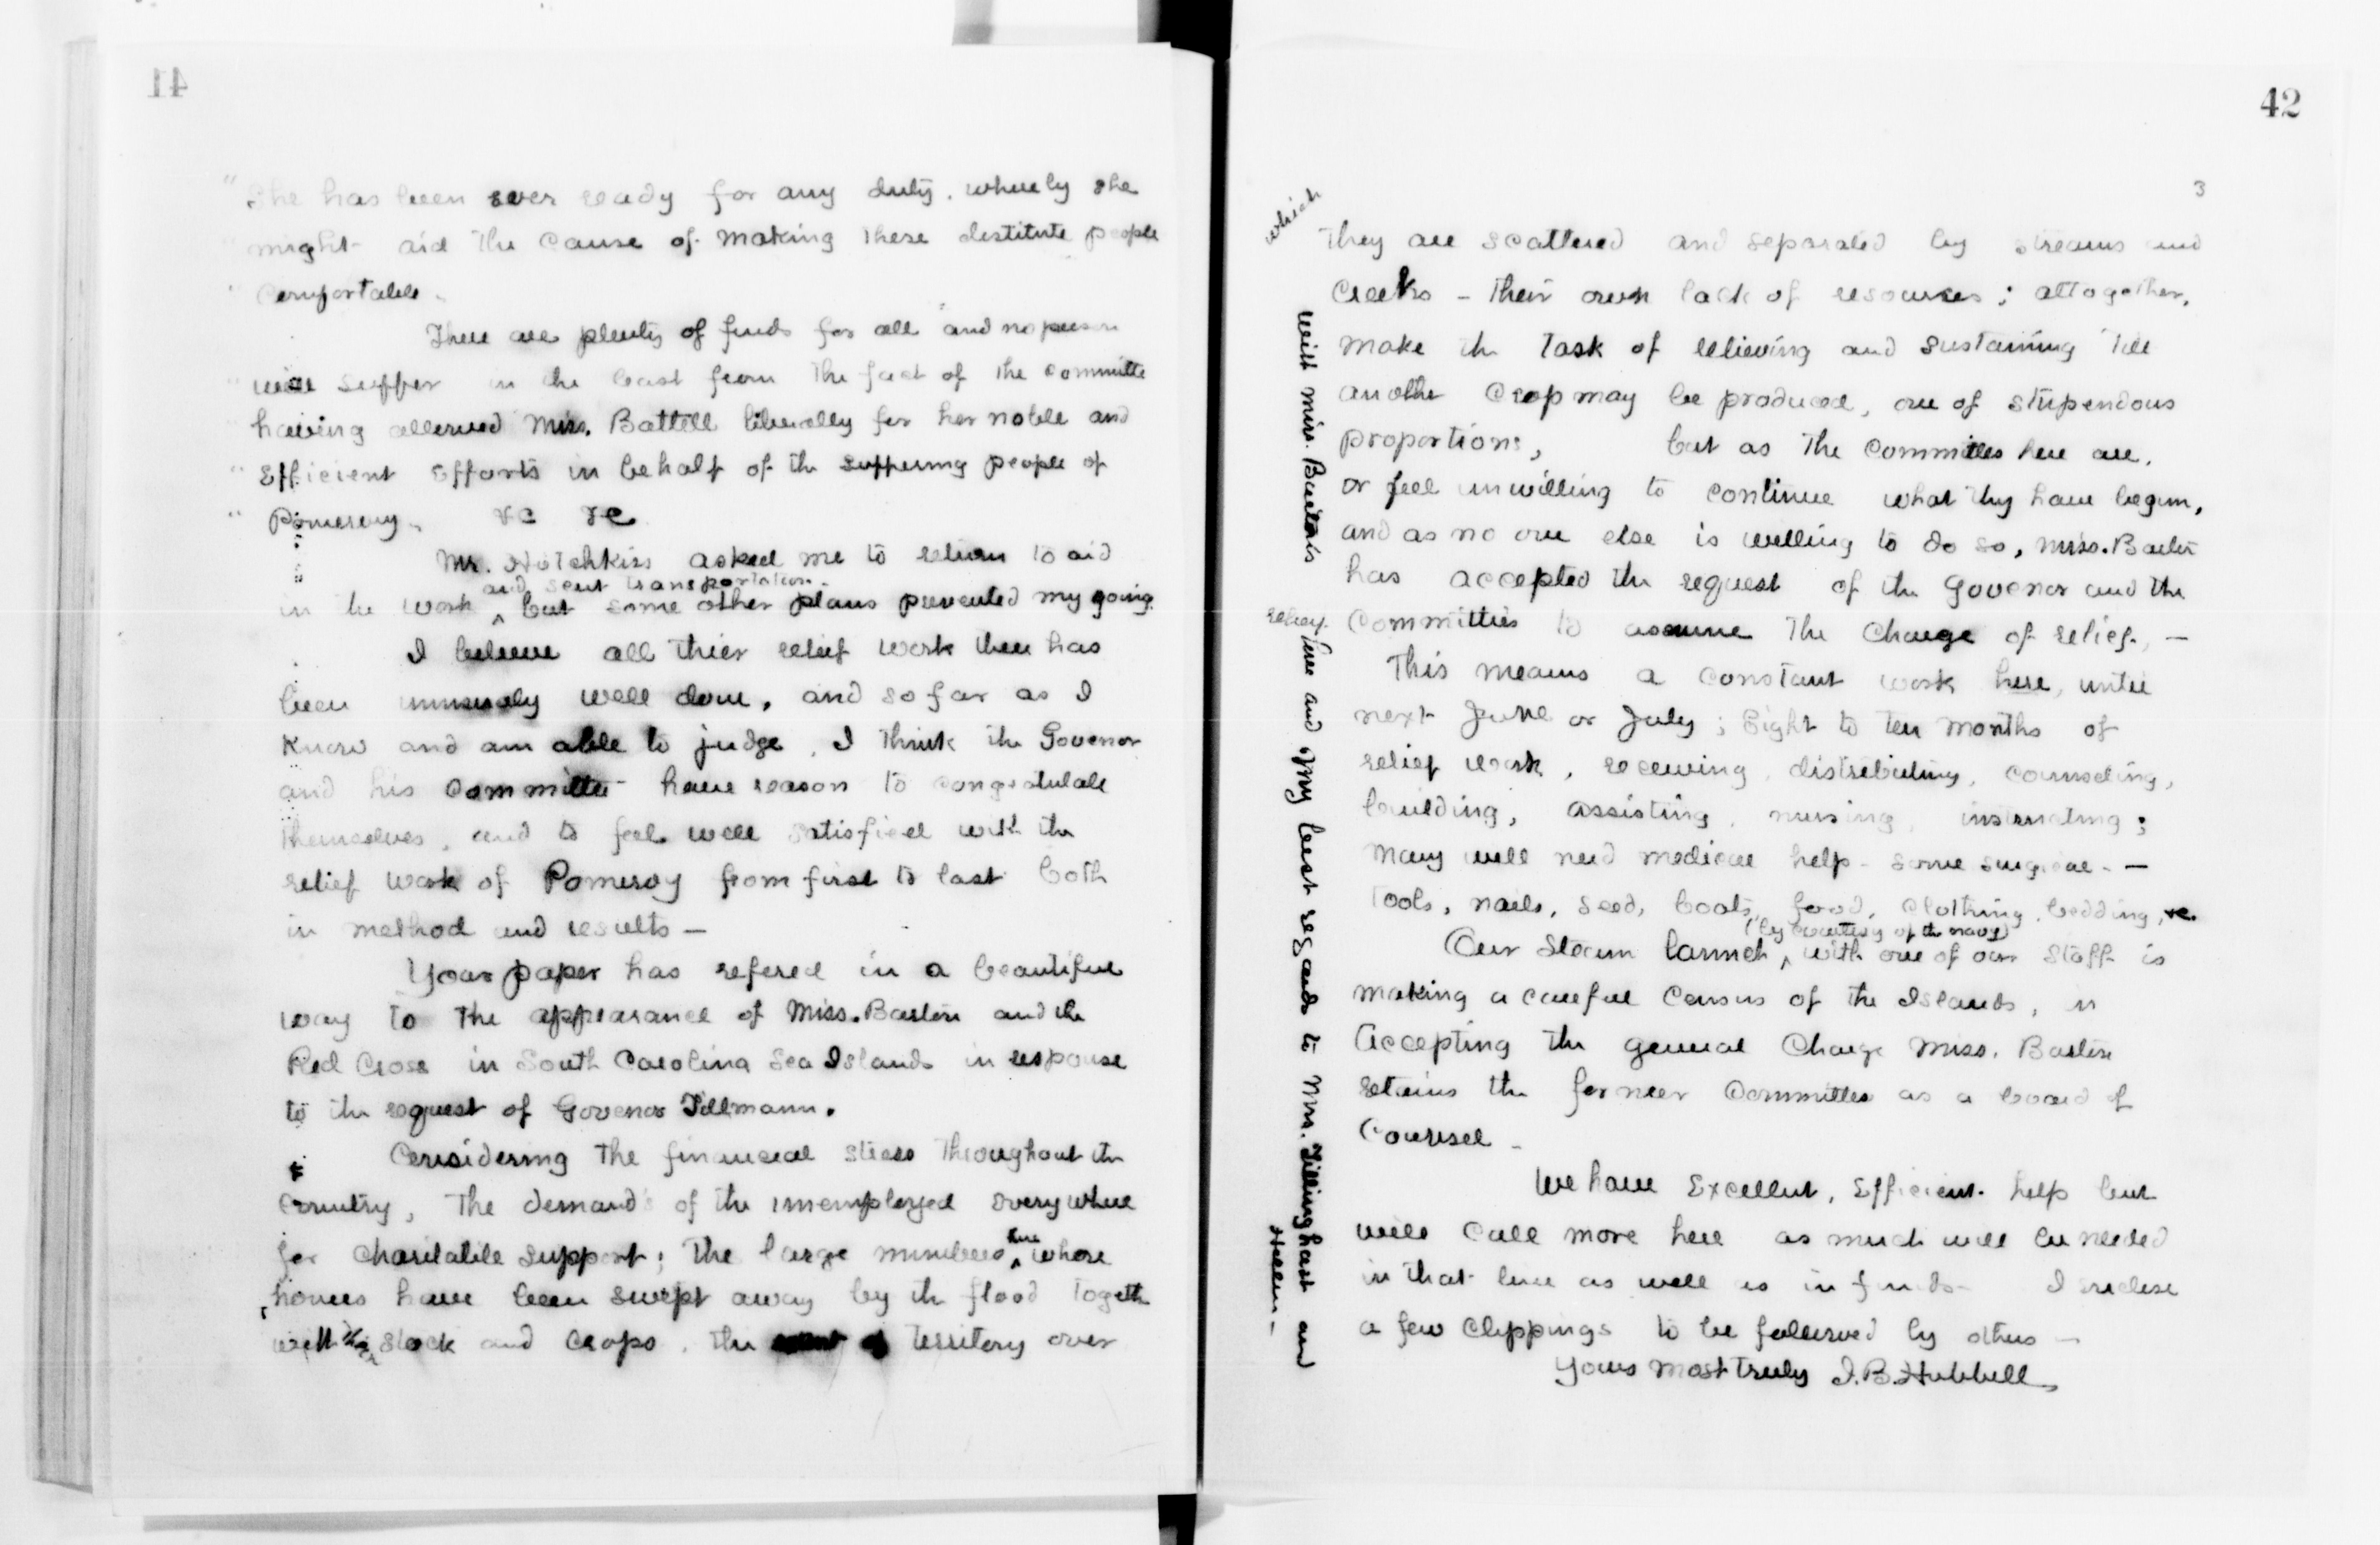 41
" She has been ever ready for any duty, whereby she
" might aid the cause of making these destitute people
" comfortable.
There are plenty of funds for all and no person
" will suffer in the least from the fact of the committe
having allowed Miss. Battell liberally for her noble and
" Efficient Efforts in behalf of the suffering people of
" Pomeroy. &c &c
Mr. Hotchkiss asked me to return to aid
and sent transportation.
in the work ^ but some other plans prevented my going.
I believe all thier relief work there has
been unusualy well done, and so far as I
know and am able to judge, I think the Govenor
and his committee have reason to congratulate
themselves, and to feel well satisfied with the
relief work of Pomeroy from first to last both
in method and results —
Your paper has refered in a beautiful
way to the appearance of Miss. Barton and the
Red Cross in South Carolina Sea Islands in response
to the request of Govenor Tillmann.
Considering the financial stress throughout the
country, the demands of the unemployed everywhere
for charitable support; the large numbers ^ here whose
homes have been swept away by the flood togeth
with their stock and crops, the extent of territory over
42
3
which
they are scattered and separated by streams and
creeks – their own lack of resources; altogether,
make the task of relieving and sustaining till
another crop may be produced, one of stupendous
proportions, but as the committees here are,
or feel unwilling to continue what they have begun,
and as no one else is willing to do so, Miss. Barton
has accepted the request of the Govenor and the
Committies to assume the charge of relief, —
This means a constant work here, until
next June or July; Eight to ten months of
relief work, receiving, distributing, counseling,
building, assisting, nursing, instructing;
Many will need medical help – some surgical. —
Tools, nails, seed, boats, food, clothing, bedding, &c.
(by courtesy of the navy)
Our steam launch ^ with one of our staff is
making a careful census of the Islands, in
Accepting the general charge Miss. Barton
retains the former committee as a board of
Counsel –
We have Excellent, Efficient help but
will call more here as much will be needed
in that line as well as in funds – I enclose
a few clippings to be followed by others —
Yours most truly J.B. Hubbell
With Miss. Barton's
love and my best regards to Mrs. Tillinghast and
Hellen –